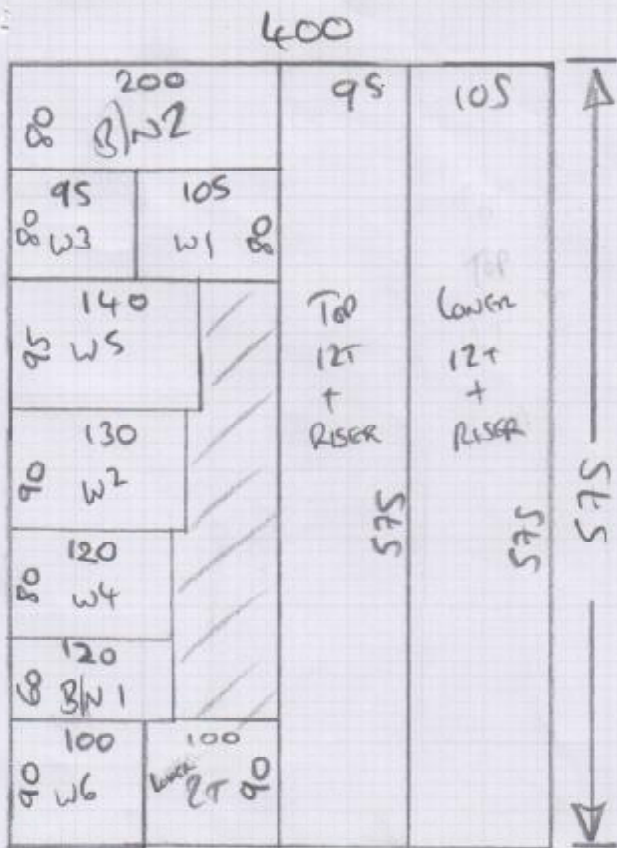 400
200
80 B/N2
95
80 W3
105
W1 80
140
95 W5
130
90 W2
120
80 W4
120
60 B/N 1
100
90 W6
100
LOWER 2T 90
95
TOP
12T
+
RISER
575
105
TOP
LOWER
12T
+
RISER
575
575